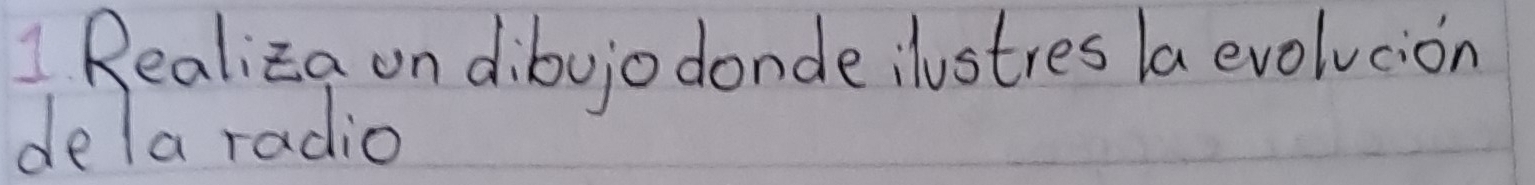 1. Realiza un dibujo donde ilustres la evolución
de la radio